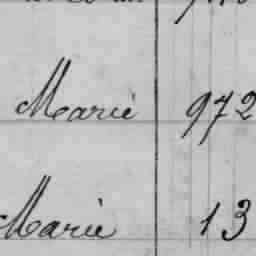 Marie 972
Marie 13